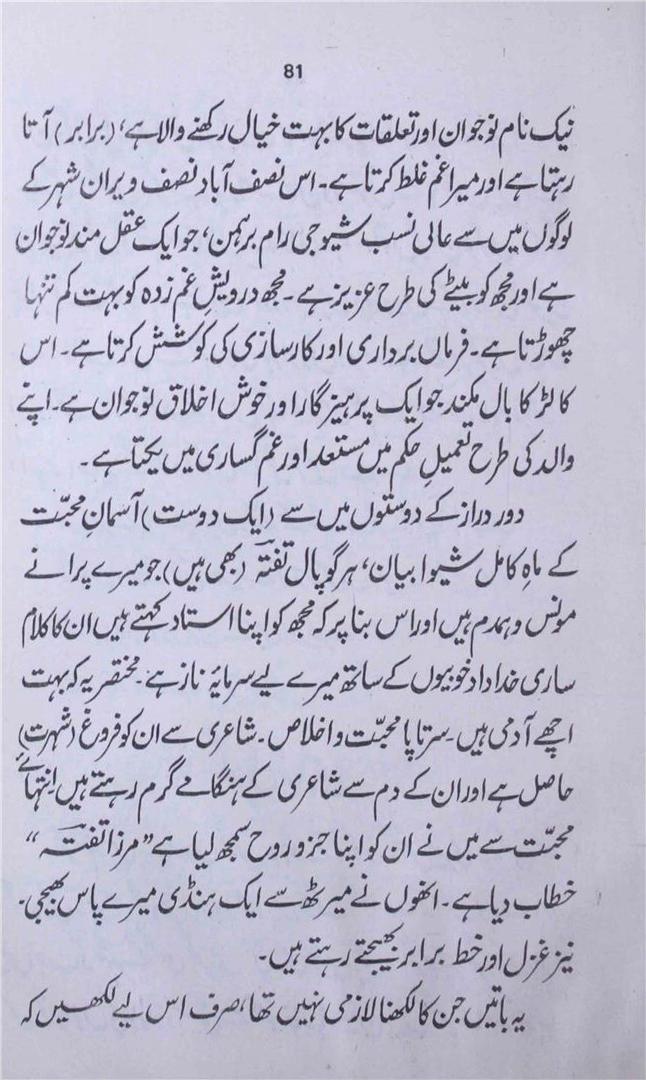 81
نیک نام نوجوان اور تعلقات کا بہت خیال رکھنے والا ہے، (برابر) آتا
رہتا ہے اور میرا غم غلط کرتا ہے۔ اس نصف آباد نصف ویران شہر کے
لوگوں میں سے عالی نسب شیوجی رام برہمن، جو ایک عقل مند نوجوان
ہے اور مجھ کو بیٹے کی طرح عزیز ہے۔ مجھ درویشِ غم زدہ کو بہت کم تنہا
چھوڑتا ہے۔ فرماں برداری اور کارسازی کی کوشش کرتا ہے۔ اس
کا لڑکا بال مکند جو ایک پرہیزگار اور خوش اخلاق نوجوان ہے۔ اپنے
والد کی طرح تعمیلِ حکم میں مستعد اور غم گساری میں یکتا ہے۔
دور دراز کے دوستوں میں سے (ایک دوست) آسمانِ محبّت
کے ماہِ کامل شیوا بیان، ہرگوپال تفتہؔ (بھی ہیں) جو میرے پرانے
مونس و ہمدم ہیں اور اس بنا پر کہ مجھ کو اپنا استاد کہتے ہیں ان کا کلام
ساری خداداد خوبیوں کے ساتھ میرے لیے سرمایۂ ناز ہے۔ مختصر یہ کہ بہت
اچھے آدمی ہیں۔ سرتاپا محبّت و اخلاص۔ شاعری سے ان کو فروغ (شہرت)
حاصل ہے اور ان کے دم سے شاعری کے ہنگامے گرم رہتے ہیں۔ انتہائے
محبّت سے میں نے ان کو اپنا جزوِ روح سمجھ لیا ہے ”مرزا تفتہؔ“
خطاب دیا ہے۔ انھوں نے میرٹھ سے ایک ہنڈی میرے پاس بھیجی۔
نیز غزل اور خط برابر بھیجتے رہتے ہیں۔
یہ باتیں جن کا لکھنا لازمی نہیں تھا، صرف اس لیے لکھیں کہ